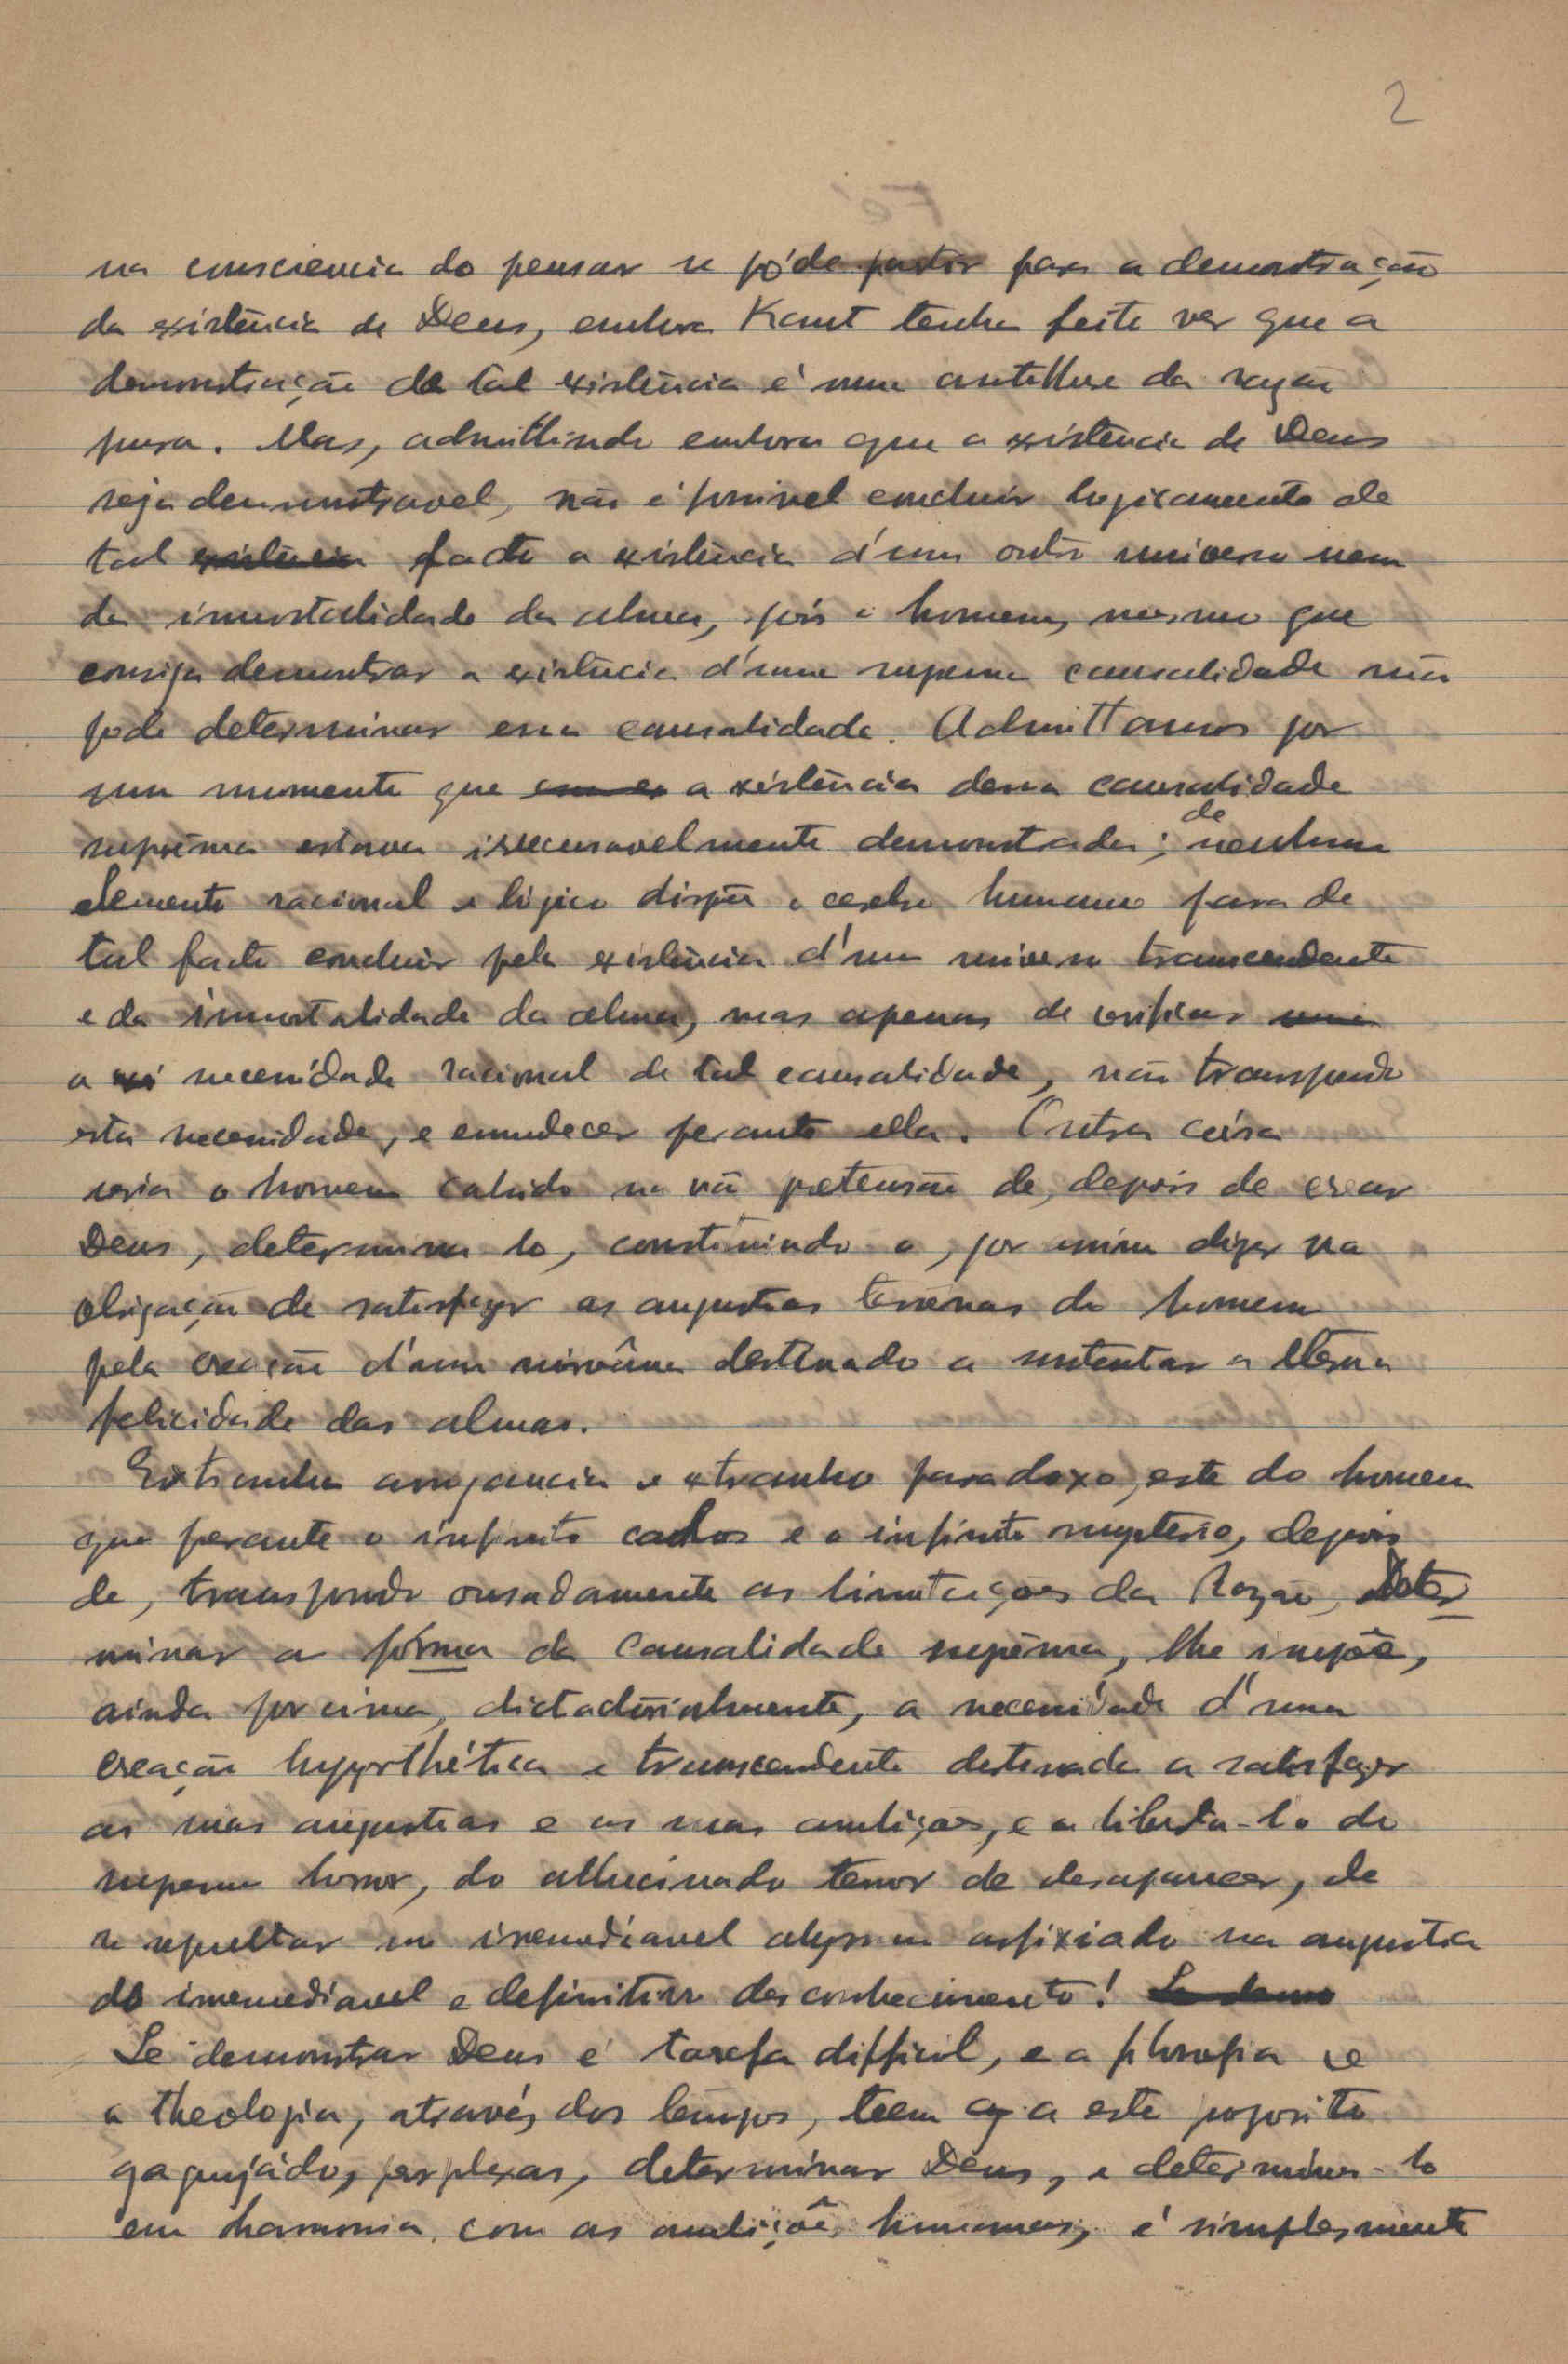 2
na consciencia do pensar se póde partir para a demonstração
da existência de Deus, embora Kant tenha feito ver que a
demonstração de tal existência é uma antithese da razão
pura. Mas, admittindo embora que a existência de Deus
seja demonstravel, não é possivel concluir logicamente de
tal existência facto a existência d'um outro universo nem
da immortalidade da alma, pois o homem, mesmo que
consiga demonstrar a existência d'uma suprema causalidade não
pode determinar essa causalidade. Admittamos por
um momento que a existência dessa causalidade
suprêma estava irrecusavelmente demonstrada; de nenhum
elemento racional e lógico dispõe o cerebro humano para de
tal facto concluir pela existência d'um universo transcendente
e da immortalidade da alma, mas apenas de verificar uma
a necessidade racional de tal causalidade, não transpondo
esta necessidade, e emudecer perante ella. Outra coisa
seria o homem cahido na vã pretensão de, depois de crear
Deus, determina-lo, constituindo-o, por assim dizer na
obrigação de satisfazer as angustias terrenas do homem
pela creação d'um nirvâna destinado a sustentar a eterna
felicidade das almas.
Extranha arrogancia e extranho paradoxo, este do homem
que perante o infinito cahos e o infinito mysterio, depois
de, transpondo ousadamente as limitações da Razão, Deter
minar a fórma da causalidade suprêma, lhe impõe,
ainda por cima, dictadorialmente, a necessidade d'uma
creação hypothética e transcendente destinada a satisfazer
as suas angustias e as suas ambições, e a liberta-lo do
supremo horror, do allucinado terror de desaparecer, de
se sepultar no irremediavel abysmo asfixiado na angustia
do irremediavel e definitivo desconhecimento!
Se demonstrar Deus é tarefa difficil, e a philosofia e
a theologia, através dos tempos, teem a este proposito
gaguejádo, perplexas, determinar Deus, e determina-lo
em harmonia com as ambições humanas, é simplesmente